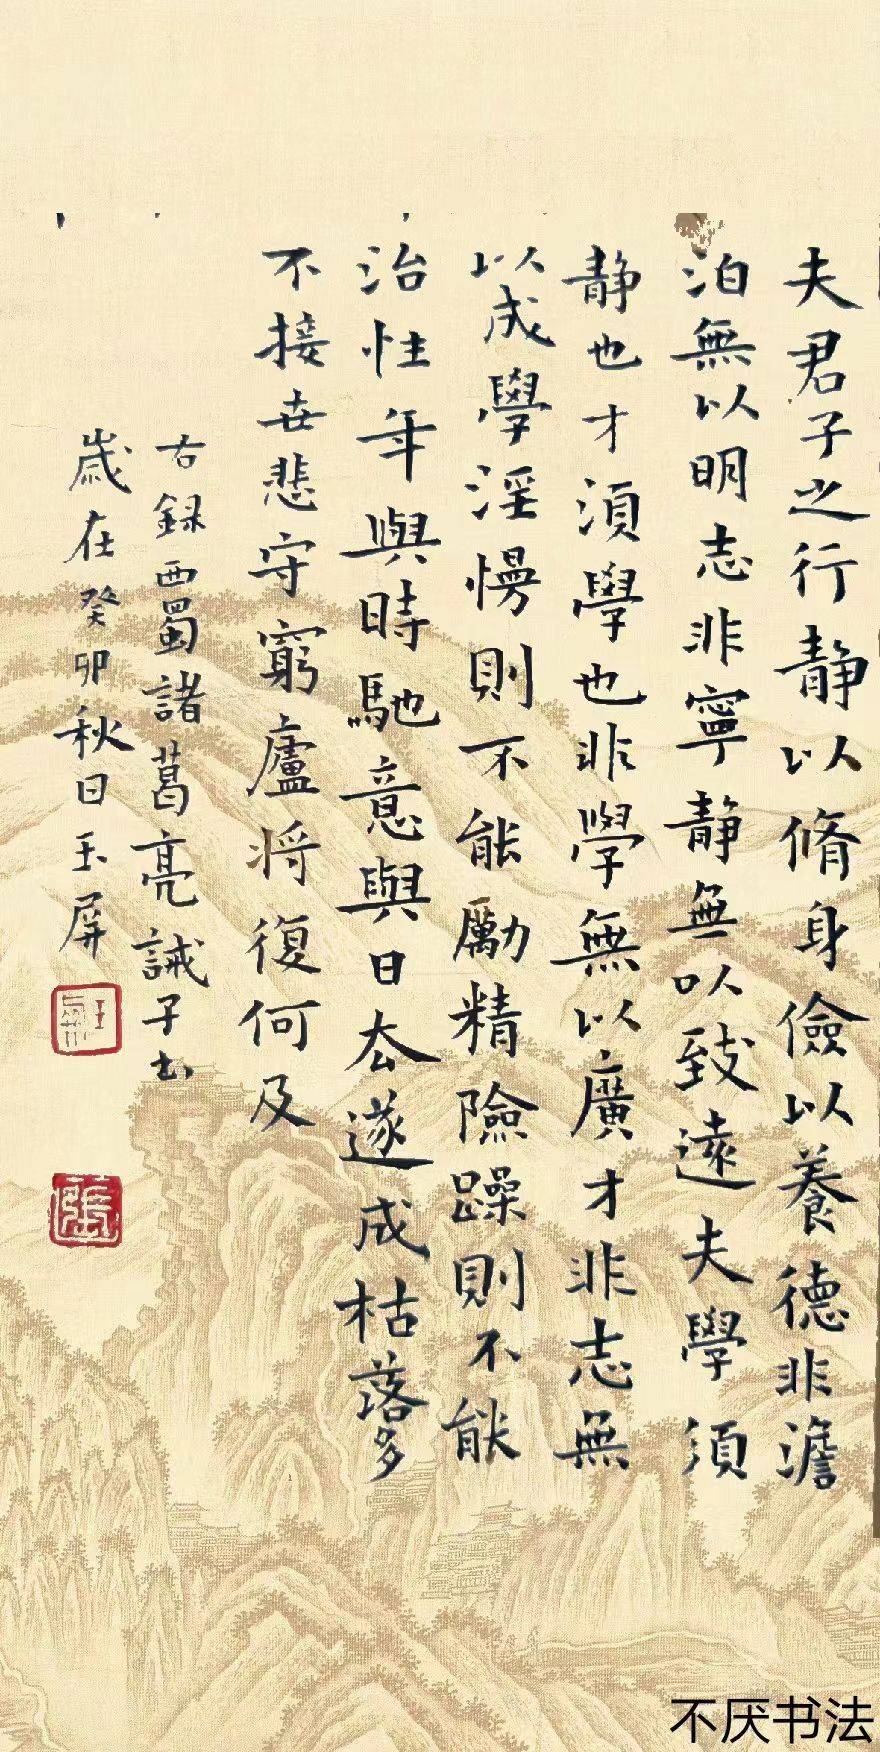 夫君子之行靜以脩身儉以養德非澹
泊無以明志非寧靜無以致遠夫學須
靜也才須學也非學無以廣才非志無
以成學淫慢則不能勵精險躁則不能
治性年與時馳意與日去遂成枯落多
不接世悲守窮廬將復何及
右録西蜀諸葛亮誡子书
歲在癸卯秋日玉屏
不厌书法